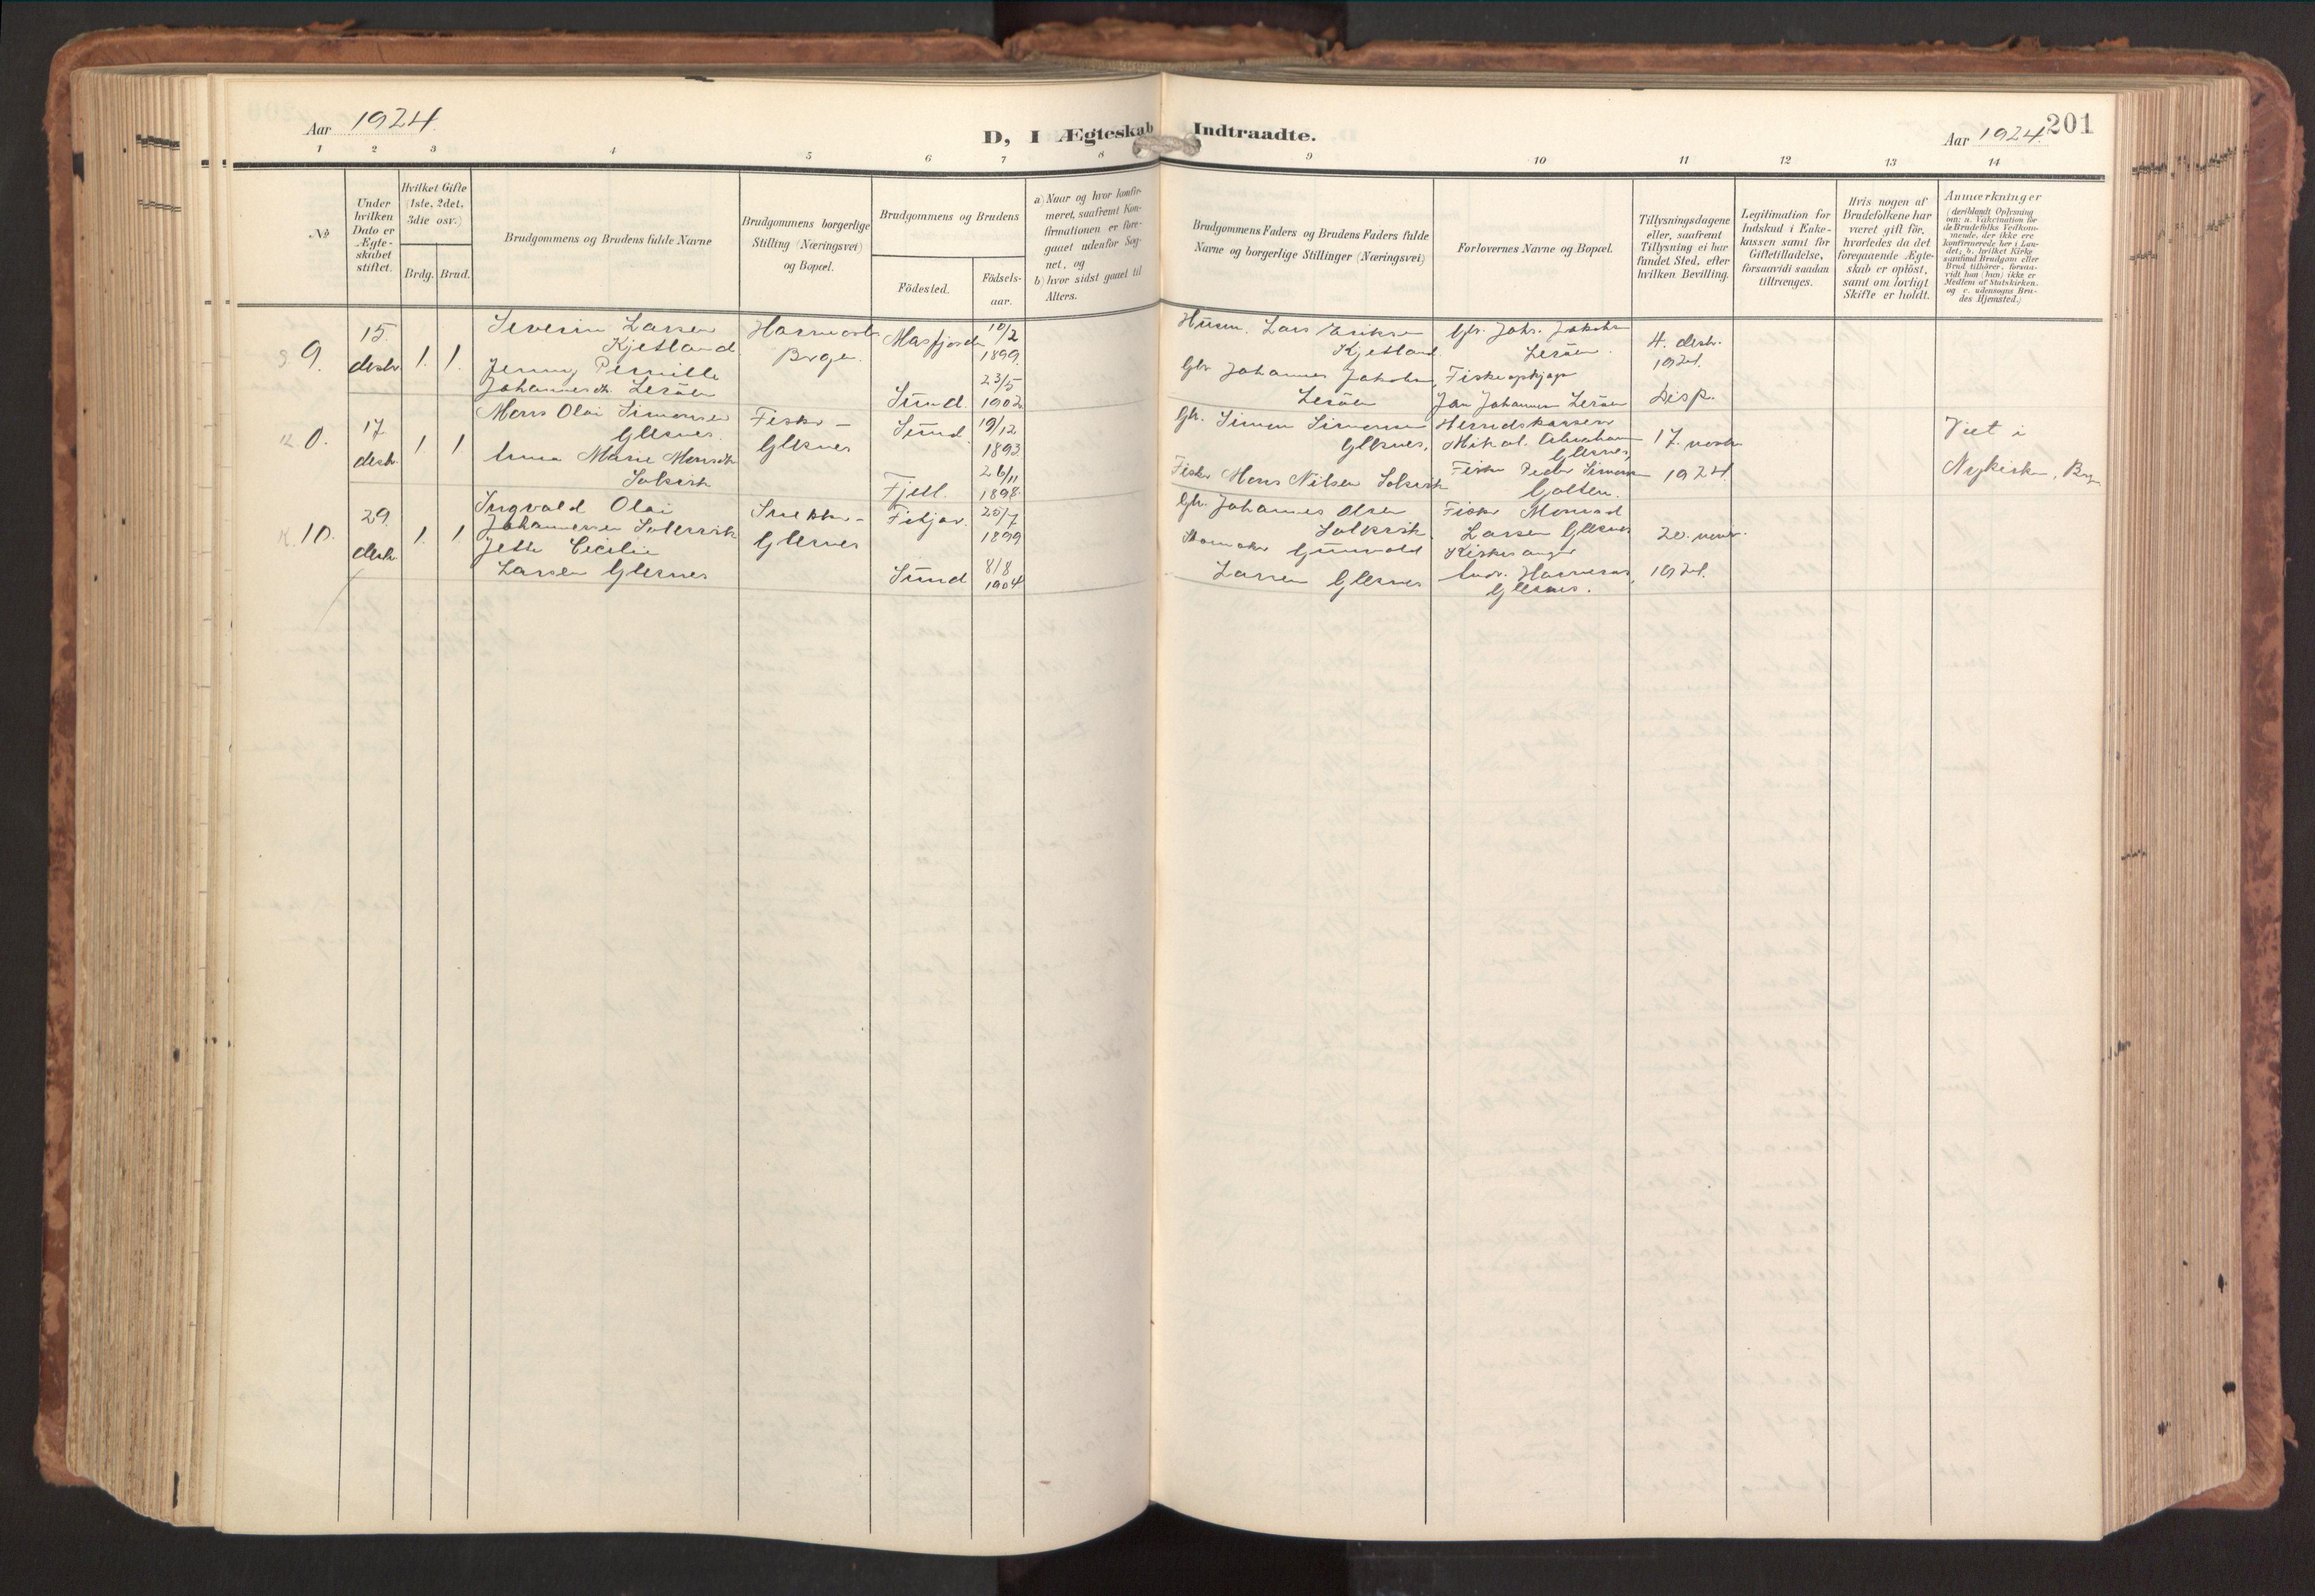 Aar 1924.
D, I Ægteskab Indtraadte.
Aar 1924.
201
1 2 3 4 5 6 7 8 9 10 11 12 13 14
No
Under hvilken Dato er Ægte-skabet stiftet.
Hvilket Gifte (1ste, 2det, 3die osv.)
Brdg. Brud.
Brudgommens og Brudens fulde Navne
Brudgommens borgerlige Stilling (Næringsvei) og Bopæl.
Brudgommens og Brudens
Födested.
Födsels-aar.
a) Naar og hvor konfir-meret, saafremt Kon-firmationen er fore-gaaet udenfor Sog-net, og
b) hvor sidst gaaet til Alters.
Brudgommens Faders og Brudens Faders fulde Navne og borgerlige Stillinger (Næringsvei)
Forlovernes Navne og Bopæl.
Tillysningsdagene eller, saafremt Tillysning ei har fundet Sted, efter hvilken Bevilling.
Legitimation for Indskud i Enke-kassen samt for Giftetilladelse, forsaavidt saadan tiltrænges.
Hvis nogen af Brudefolkene har været gift för, hvorledes da det foregaaende Ægte-skab er oplöst, samt om lovligt Skifte er holdt.
Anmærkninger
(deriblandt Oplysning om: a. Vakcination for de Brudefolks Vedkom-mende, der ikke ere konfirmerede her i Lan-det; b. hvilket Kirke-samfund Brudgom eller Brud tilhörer, forsaa-vidt han (hun) ikke er Medlem af Statskirken, og c. udensogns Bru-des Hjemsted.)
9. 15. desbr. 1. 1.
Severin Larsen
Kjetland
Jenny Pernille
Johannesdtr. Leröen
Bergen.
Masfjorden 10/2 1899.
Sund. 23/5 1902
Husm. Lars Eriksen
Kjetland.
Gbr. Johannes Jakobsen,
Leröen
Gbr. Johs. Jakobsen
Leröen.
Fiskeopkjøper
Jan Johannesen Leröen
4. desbr.
1924.
Disp.
0. 17. desbr. 1 1
Mons Olai Simonsen
Glesnes.
Anna Marie Monsdtr.
Solsvik
Fisker -
Glesnes
Sund. 19/12 1893
Fjell. 26/11 1898.
Gbr. Simon Simonsen
Glesnes.
Fisker Mons Nilsen Solsvik
Herredskasserer
Mikal Abraham
Glesnes,
Fisker Peder Simonsen
Golten.
17. novbr.
1924.
Viet i
Nykirken, Bergen
10. 29. desbr. 1. 1
Ingvald Olai
Johannesen
Jette Cecilie
Larsen Glesnes
Snekker -
Glesnes
Fitjar. 25/7 1899
Sund 8/8 1904
Gbr. Johannes Olsen
Gunvald
Larsen Glesnes
Fisker Monrad
Larsen Glesnes
Kirkesanger
Andr.
Glesnes.
20. novbr.
1924.